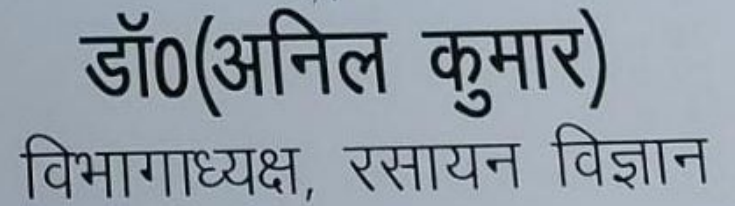 डॉ0(अनिल कुमार)
विभागाध्यक्ष, रसायन विज्ञान